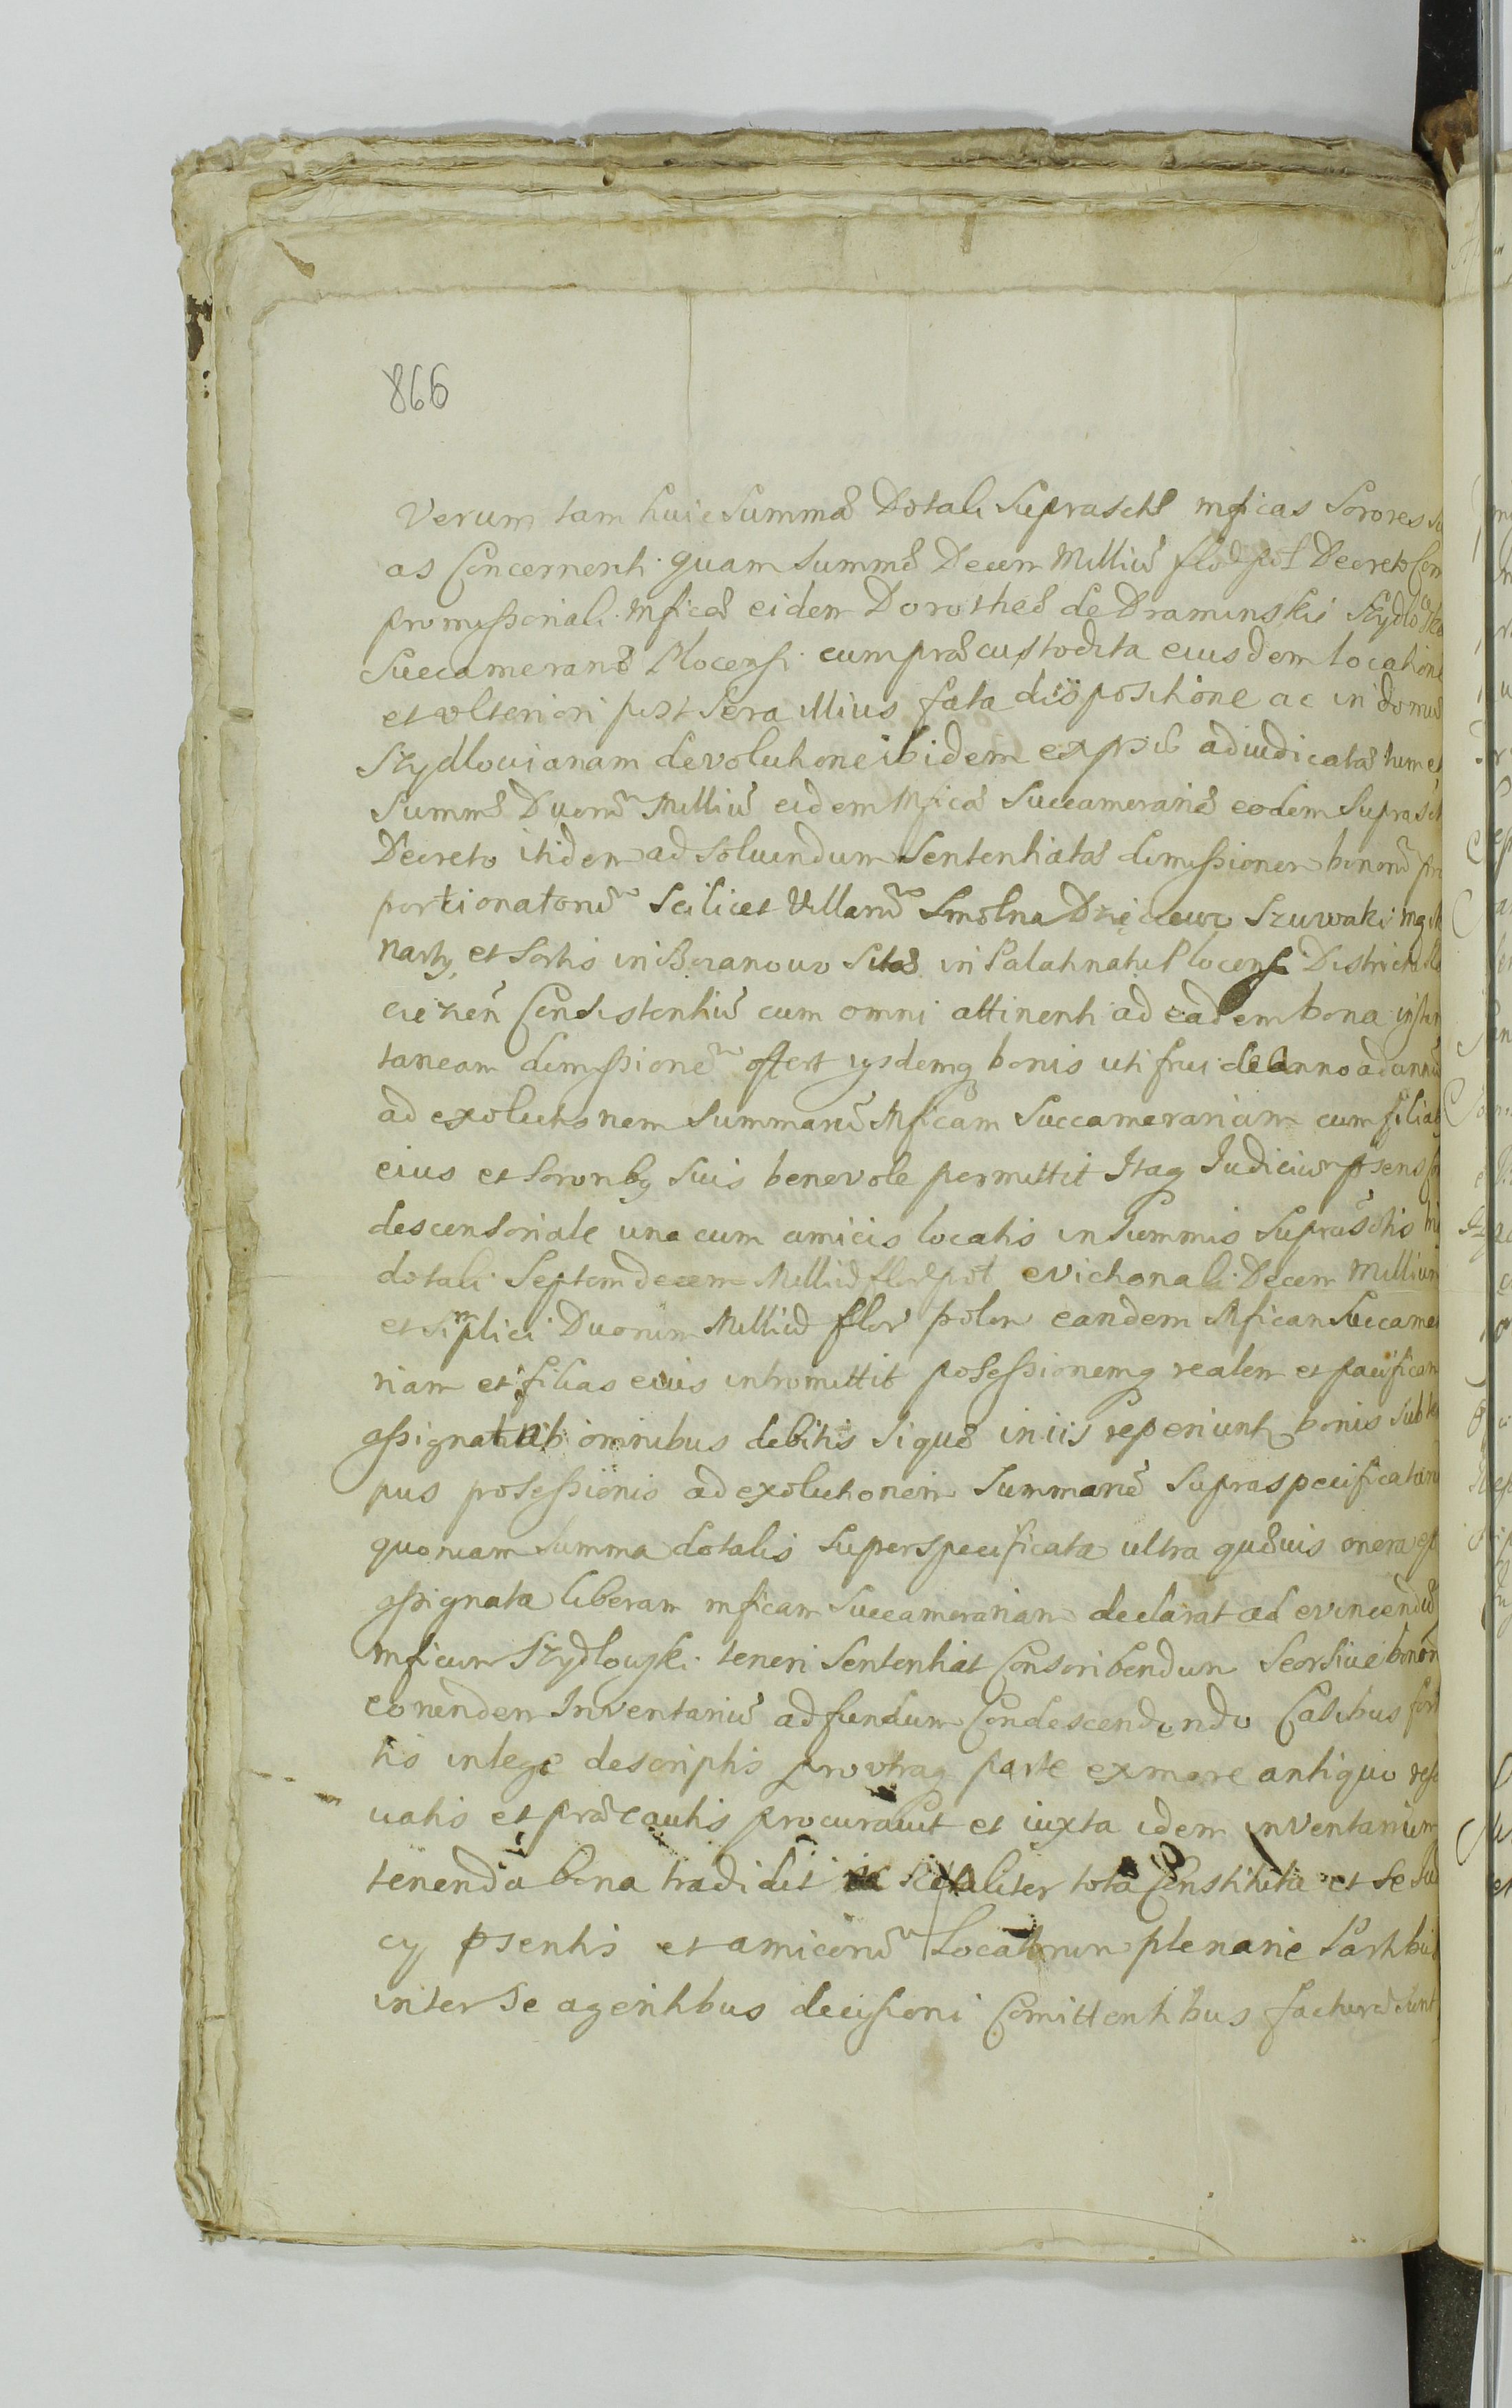 866
Verum tam huic Summæ Dotali Suprascte mficas Sorores su
as Concernenti quam Summæ Decem Milliũ flor pol Decreto Com
promissionali Mficæ eidem Dorotheæ de Draminskis Szydłowska
Succamerariæ Plocensi cum præcustodita eiusdem locatione
et ulteriori post Sera illius fata dispositione ac in domũ
Szydlovianam devolutione ibidem adiudicatæ tum et
Summæ Duorũ Milliũ eidem Mficæ Succamerariæ eodem Suprasct
Decreto itidem ad Solvendum Sententiatæ dimissionem bonorũ pro
portionatorũ Scilicet Villarũ Smolna Szuwaki
Narty, et Sortis in Baranowo Sitæ in Palatinatu Plocensi Districtu
Consistentiũ cum omni attinenti ad eadem bona instan
taneam dimissionẽ offert iisdemq bonis uti frui de anno ad annũ
ad exolutionem Summarũ Mficam Succamerariam cum filiab
eius et Sororibq Suis benevole permittit Itaq Iudicium psens
descensoriale una cum amicis locatis in Summis Suprasctis
dotali Septemdecem Milliũ flor pol evictionali Decem Millium
et simplici Duorum Milliũ flor polon eandem Mficam Succame
riam et filias eius intromittit possessionemq realem et pacificam
assignat ab omnibus debitis Si quæ in iis reperiunt bonis sub
pus possessionis ad exolutionem Summarũ Supraspecificatarũ
quoniam Summa dotalis Superspecificata ultra quævis onera est
assignata liberam mficam Succamerariam declarat ad evincendũ
mficum Szydłowski teneri Sententiat Conscribendum Seorsive bonor
eorundem Inventariũ ad fundum Condescendendo Casibus for
tis integre descriptis pro utraq parte ex more antiquo
vatis et præcautis procuravit et iuxta idem inventarium
tenenda bona tradidit taliter tota Constituta et se
cij psentis et amicorũ Locatorum plenarie Partibus
inter Se agentibus decisioni Comittentibus facturæ sunt